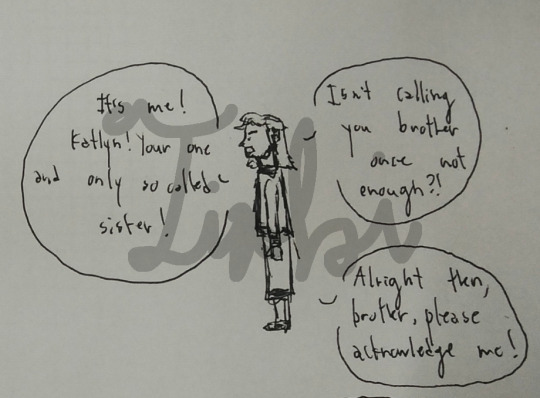 It's me!
Katlyn! Your one
and only so called
sister!
Isn't calling
you brother
once not
enough?!
Alright then,
brother, please
acknowledge me!